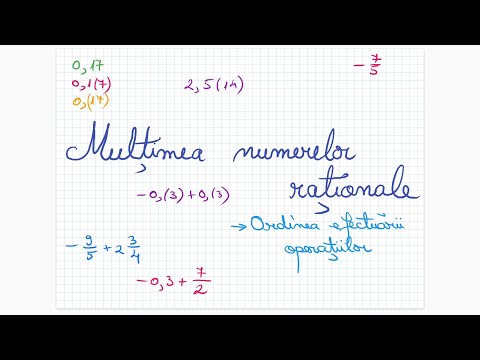 0,17
0,1(7)
0,(17)
2,5(14)
- 7/5
Mulțimea numerelor
raționale
-0,(3)+0,(3)
→ Ordinea efectuării
operațiilor
- 9/5 + 2 3/4
-0,3 + 7/2